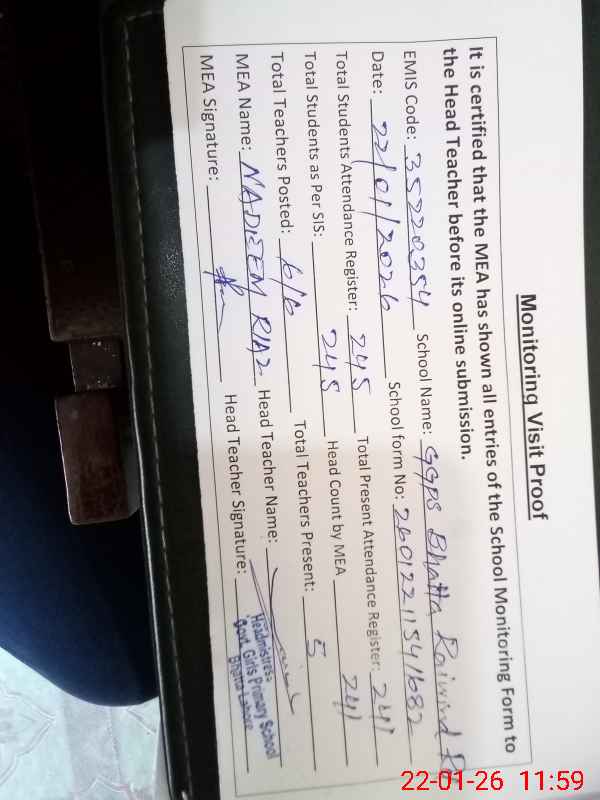 Monitoring Visit Proof
It is certified that the MEA has shown all entries of the School Monitoring Form to
the Head Teacher before its online submission.
EMIS Code: 35220354 School Name: GGPS Bhatta Raiwind
Date: 22/01/2026 School form No: 26012211541682
Total Students Attendance Register: 245 Total Present Attendance Register: 241
Total Students as Per SIS: 245 Head Count by MEA 241
Total Teachers Posted: 6/6 Total Teachers Present: 5
MEA Name: NADEEM RIAZ Head Teacher Name:
MEA Signature: Head Teacher Signature:
Headmistress
Govt. Girls Primary School
Bhatta Lahore
22-01-26 11:59